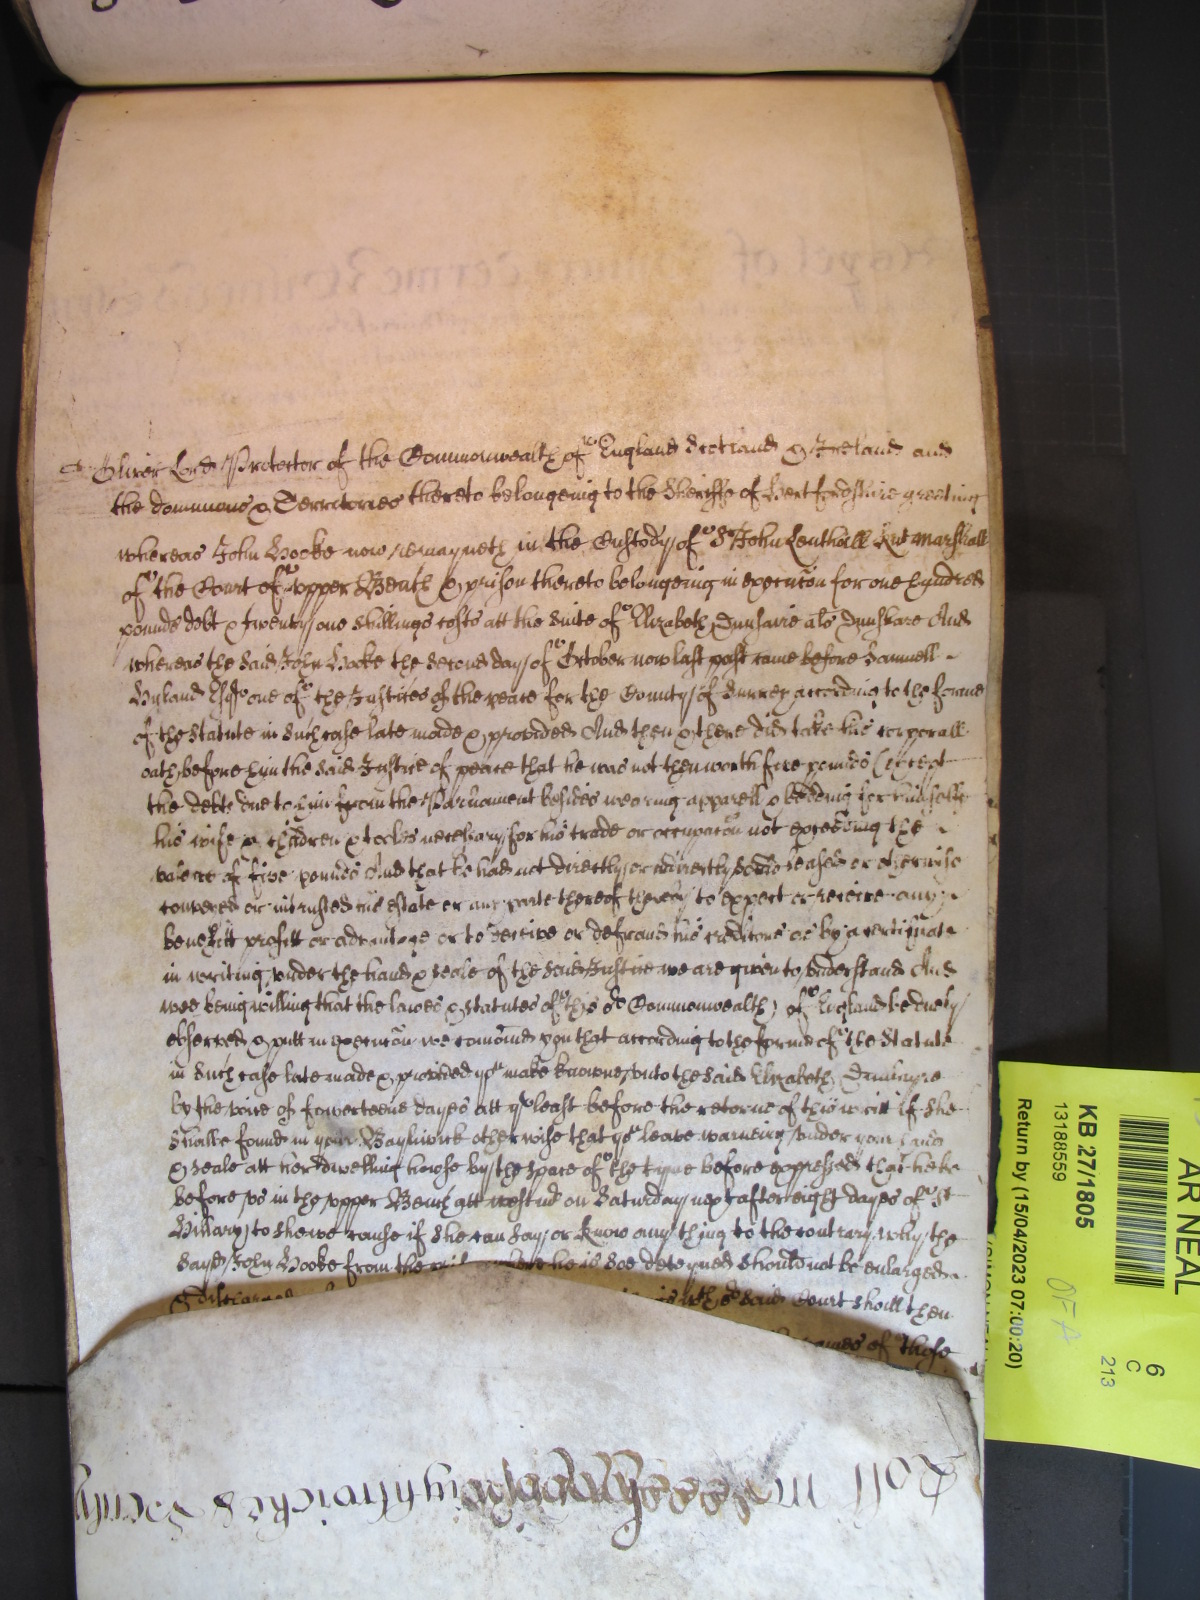 Oliver Lord Protector of the Commonwealth of England Scotland & Ireland and
the dominions & Territories thereto belonging to the Sheriffe of Hertfordshire greeting
whereas John Hooke now remayneth in the Custody of Sr John Lenthall Knt Marshall
of the Court of upper Bench & prison thereto belongeing in execucon for one hundred
pounds debt & twenty one shillings costs att the suite of Elizabeth als And
whereas the said John Hooke the second day of October now last past came before Samuell
Hyland Esqr one of the Justices of the peace for the County of Surrey according to the forme
of the Statute in such case late made & provided And then & there did take his corporall
oath before him the said Justice of peace that he was not then worth five pounds (except
the debts due to him from the Parliament besides wearing apparell & bedding for himselfe
his wife & children & tooles necessary for his trade or occupacon not exceeding the
value of five pounds And that he had not directly or indirectly sold leased or otherwise
conveyed or intrusted his estate or any parte thereof thereby to expect or receive any
benefitt profitt or advantage or to deceive or defraud his creditors as by a certificate
in writing under the hand & seale of the said Justice we are given to understand And
wee being willing that the lawes & statutes of this or Commonwealth of England be duely
observed & putt in execucon we comand you that according to the forme of the Statute
in such case late made & provided you make knowne unto the said Elizabeth
by the space of fowerteene dayes att ye least before the retorne of this writt if she
shalbe found in your Baylywick otherwise that you leave warning under your hand
& seale att her dwelling howse by the space of the tyme before expressed that she be
before us in the upper Bench att westmr on Saturday next after eight dayes of St
Hillary to shewe cause if she can say or know any thing to the contrary why the
sayd John Hooke from the where he is soe deteyned should not be enlarged
& discharged said Court shall then
names of those
Roll
AR NEAL
KB 27/1805
13188559
Return by (15/04/2023 07:00:20)
6
C
213